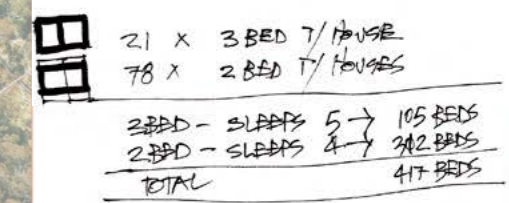 21 X 3 BED T/HOUSE
78 X 2 BED T/HOUSES
3BED - SLEEPS 5 → 105 BEDS
2BED - SLEEPS 4 → 312 BEDS
TOTAL 417 BEDS